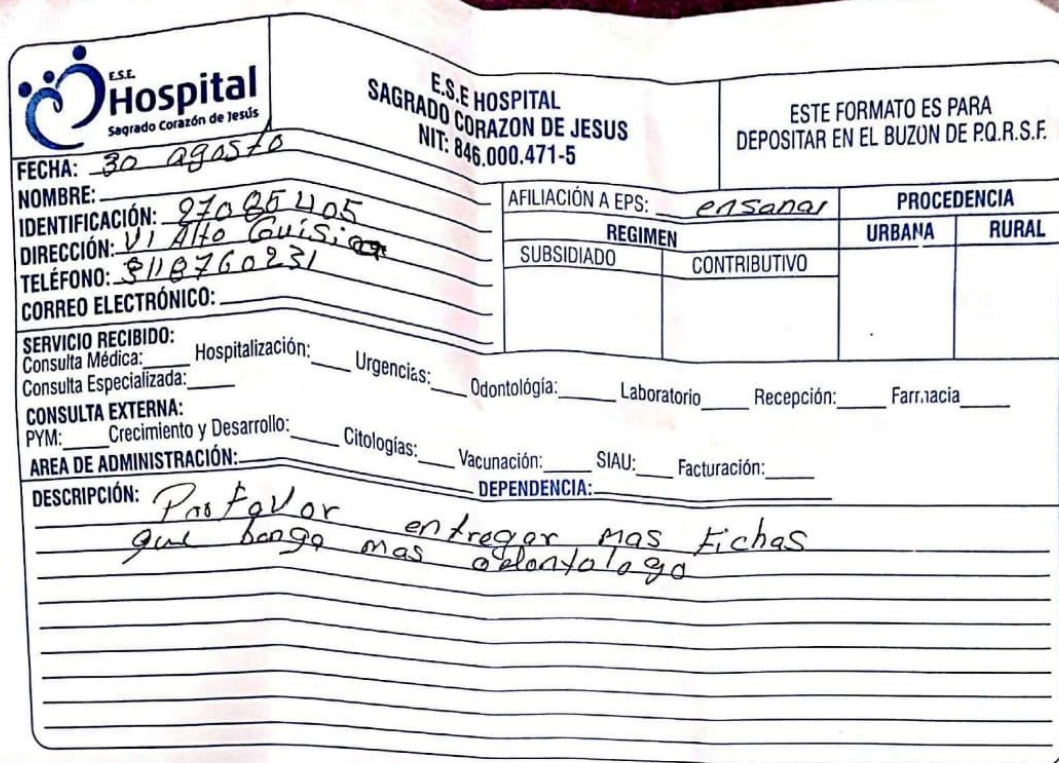 E.S.E.
Hospital
Sagrado Corazón de Jesús
E.S.E HOSPITAL
SAGRADO CORAZON DE JESUS
NIT: 846.000.471-5
ESTE FORMATO ES PARA
DEPOSITAR EN EL BUZON DE P.Q.R.S.F.
FECHA: 30 agosto
NOMBRE:
IDENTIFICACIÓN: 97085405
DIRECCIÓN: VI Alto
TELÉFONO: 3118760231
CORREO ELECTRÓNICO:
AFILIACIÓN A EPS: ensanar
PROCEDENCIA
REGIMEN
URBANA RURAL
SUBSIDIADO CONTRIBUTIVO
SERVICIO RECIBIDO:
Consulta Médica: Hospitalización: Urgencias: Odontológía: Laboratorio Recepción: Farmacia
Consulta Especializada:
CONSULTA EXTERNA:
PYM: Crecimiento y Desarrollo: Citologías: Vacunación: SIAU: Facturación:
AREA DE ADMINISTRACIÓN: DEPENDENCIA:
DESCRIPCIÓN: Por Favor entregar mas Fichas
que banga mas odontologo